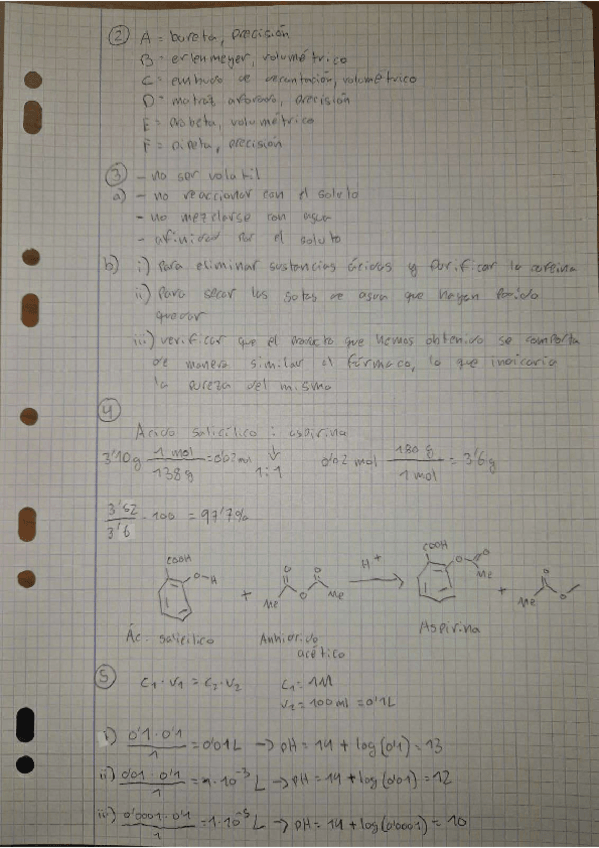 ② A = bureta, precisión
B = erlenmeyer, volumétrico
C = embudo de decantación, volumétrico
D = matraz aforado, precisión
E = probeta, volumétrico
F = pipeta, precisión
③ - no ser volátil
a) - no reaccionar con el soluto
- no mezclarse con agua
- afinidad por el soluto
b) i) Para eliminar sustancias ácidas y purificar la cafeína
ii) Para secar las gotas de agua que hayan podido
quedar
iii) verificar que el producto que hemos obtenido se comporta
de manera similar al fármaco, lo que indicaría
la pureza del mismo
④
Ácido salicílico : aspirina
3'10 g 1 mol / 138 g = 0'02 mol 1:1 0'02 mol 180 g / 1 mol = 3'6 g
3'52 / 3'6 · 100 = 97'7%
COOH O-H + Me O O O Me H+ → COOH O O Me + Me O O
Ác. salicílico Anhídrido acético Aspirina
⑤ C1 · V1 = C2 · V2 C1 = 1M
V2 = 100 ml = 0'1L
i) 0'1 · 0'1 / 1 = 0'01 L → pH = 14 + log(0'1) = 13
ii) 0'01 · 0'1 / 1 = 1 · 10⁻³ L → pH = 14 + log(0'01) = 12
iii) 0'0001 · 0'1 / 1 = 1 · 10⁻⁵ L → pH = 14 + log(0'0001) = 10